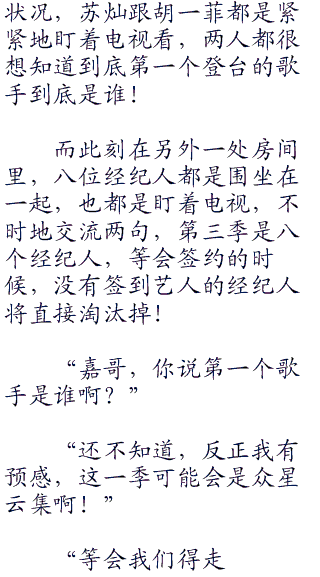 状况，苏灿跟胡一菲都是紧
紧地盯着电视看，两人都很
想知道到底第一个登台的歌
手到底是谁！
而此刻在另外一处房间
里，八位经纪人都是围坐在
一起，也都是盯着电视，不
时地交流两句，第三季是八
个经纪人，等会签约的时
候，没有签到艺人的经纪人
将直接淘汰掉！
“嘉哥，你说第一个歌
手是谁啊？”
“还不知道，反正我有
预感，这一季可能会是众星
云集啊！”
“等会我们得走